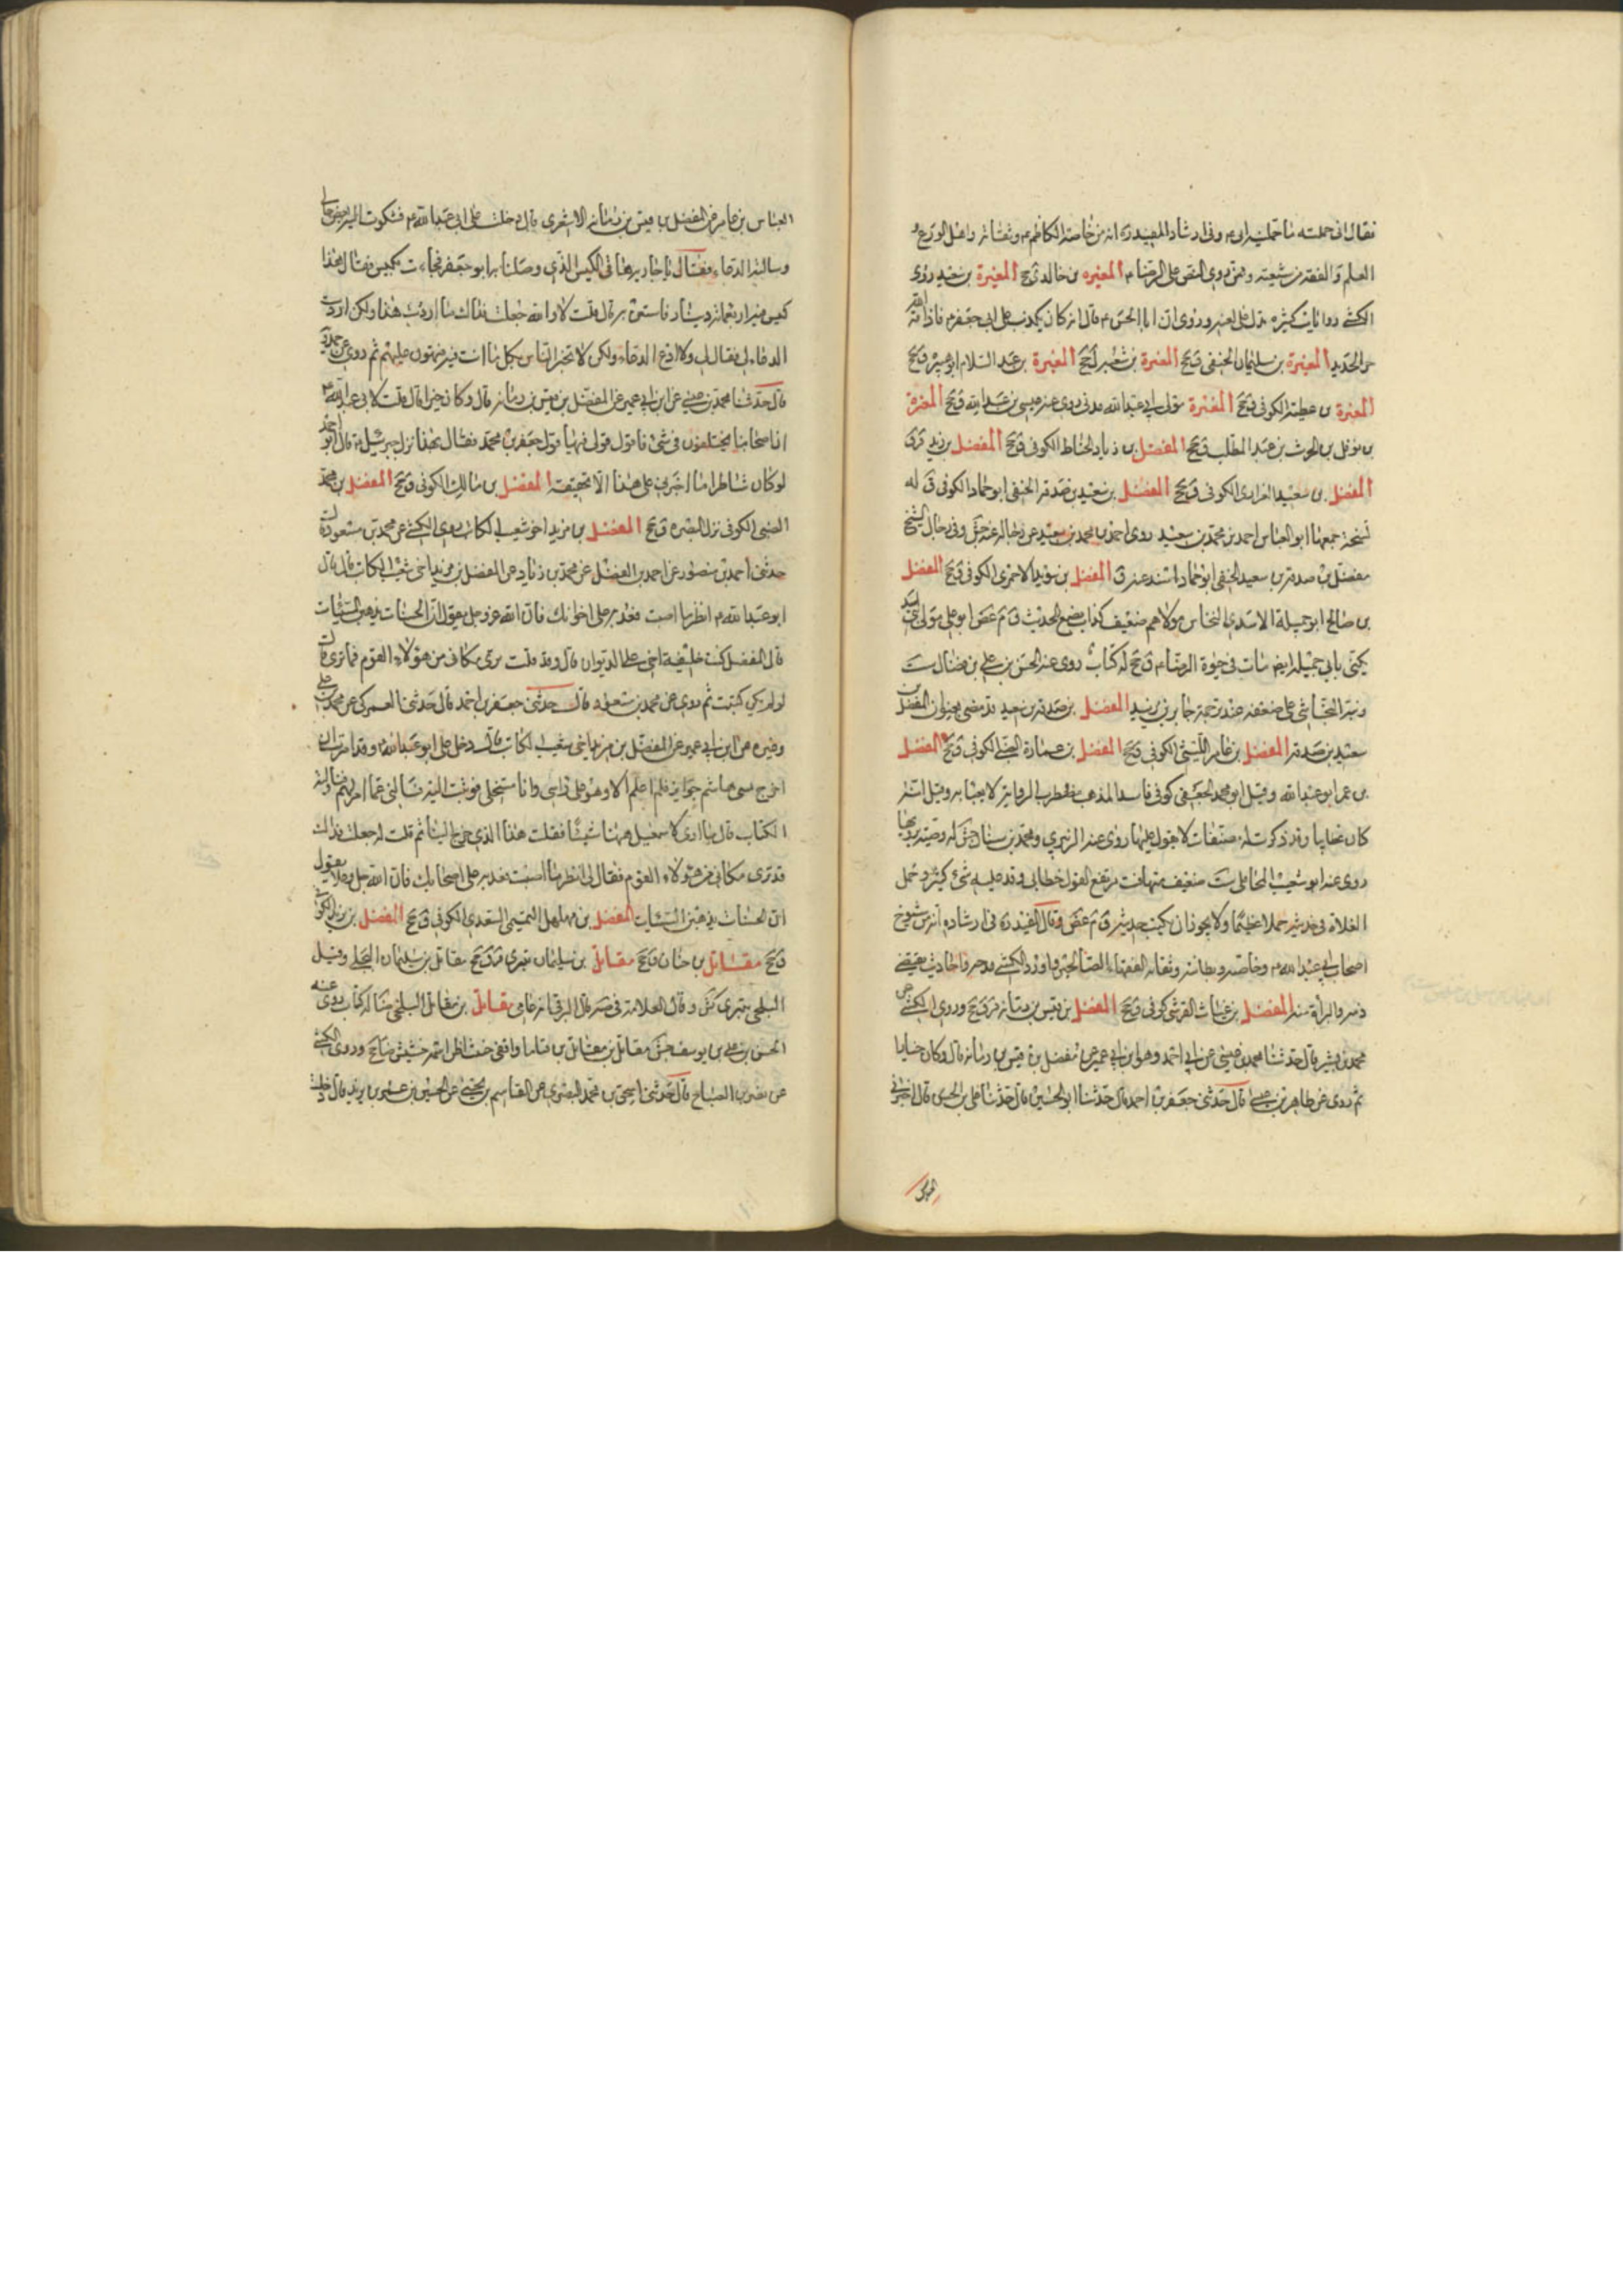 فقال انى حملته ما حملنيه ابى م وفى ارشاد المفيد ره انه من خاصة الكاظم م وثقاته واهل الورع و
العلم والفقه من شيعته وممن روى النص على الرضا م المغيره بن خالد ق جح المغيرة بن سعيد روى
الكشى روايات كثيره تدل على لعنه وروى ان ابا الحسن م قال انه كان يكذب على ابى جعفر م فاذاقه الله
حر الحديد المغيرة بن سليمان الحنفى ق جح المغيرة بن شعبه ل جح المغيرة بن عبد السلام ابو بشر ق جح
المغيرة بن عطية الكوفى ق جح المغيرة مولى ابى عبد الله مدنى روى عنه عيسى بن عبد الله ق جح المغيرة
بن نوفل بن الحرث بن عبد المطلب ى جح المفضل بن زياد الخياط الكوفى ق جح المفضل بن زيد ق ق
المفضل بن سعيد الفزارى الكوفى ق جح المفضل بن سعيد بن صدقه الحنفى ابو حماد الكوفى ق له
نسخة جمعها ابو العباس احمد بن محمد بن سعيد روى احمد بن محمد بن سعيد عن رجاله عنه جش وفى رجال الشيخ
مفضل بن صدقه بن سعيد الحنفى ابو حماد اسند عنه ق المفضل بن سويد الاحمرى الكوفى ق جح المفضل
بن صالح ابو جميلة الاسدى النخاس مولاهم ضعيف كذاب يضع الحديث ق م غض ابو على مولى بنى اسد
يكنى بابى جميله ايضا مات فى حيوة الرضا م ق جح له كتاب روى عنه الحسن بن على بن فضال ست
ونبه النجاشى على ضعفه عند ترجمة جابر بن يزيد المفضل بن صدقه بن سعيد قد مضى بعنوان المفضل بن
سعيد بن صدقه المفضل بن عامر الليثى الكوفى ق جح المفضل بن عمارة الضبى الكوفى ق جح المفضل
بن عمر ابو عبد الله وقيل ابو محمد الجعفى كوفى فاسد المذهب مضطرب الرواية لا يعبأ به وقيل انه
كان خطابيا وقد ذكرت له مصنفات لا يعول عليها روى عنه الزبيرى ومحمد بن سنان جش له وصية يرويها
روى عنه ابو شعيب المحاملى ست ضعيف متهافت مرتفع القول خطابى وقد زيد عليه شئ كثير وحمل
الغلاة فى حديثه حملا عظيما ولا يجوز ان يكتب حديثه ق م غض وقال المفيد ره فى ارشاده انه من شيوخ
اصحاب ابى عبد الله م وخاصته وبطانته وثقاته الفقهاء الصالحين واورد الكشى مدحه واحاديث يقتضى
ذمه والبراة منه المفضل بن غياث القرشى كوفى ق جح المفضل بن قيس بن رمانه قر ق جح وروى الكشى عن
محمد بن بشير قال حدثنا محمد بن عيسى عن ابى احمد وهو ابن ابى عمير عن مفضل بن قيس بن رمانه قال وكان خيارا
ثم روى عن طاهر بن عيسى قال حدثنى جعفر بن احمد قال حدثنا ابو الحسين قال حدثنا على بن الحسن قال اخبرنى
العباس
العباس بن عامر عن المفضل بن قيس بن رمانه الاشعرى قال دخلت على ابى عبد الله م فشكوت اليه بعض حالى
وسالته الدعاء فقال يا جارية هاتى الكيس الذى وصلنا به ابو جعفر فجاءت بكيس فقال هذا
كيس فيه اربعمائة دينار فاستعن به قال قلت لا والله جعلت فداك ما اردت هذا ولكن اردت
الدعاء لى فقال لى ولا ادع الدعاء ولكن لا تخبر الناس بكل ما انت فيه فتهون عليهم ثم روى عن حمدويه
قال حدثنا محمد بن عيسى عن ابن ابى عمير عن المفضل بن قيس بن رمانه قال وكان خيرا قال قلت لابى عبد الله م
ان اصحابنا يختلفون فى شئ فاقول قولى فيها قول جعفر بن محمد فقال بهذا نزل جبرئيل م قال ابو احمد
لو كان شاطرا ما اخبرنى على هذا الا بحقيقته المفضل بن مالك الكوفى ق جح المفضل بن محمد
الضبى الكوفى نزل البصره ق جح المفضل بن مزيد اخو شعيب الكاتب روى الكشى عن محمد بن مسعود قال
حدثنى احمد بن منصور عن احمد بن الفضل عن محمد بن زياد عن المفضل بن مزيد اخى شعيب الكاتب قال قال
ابو عبد الله م انظر ما اصبت فعد به على اخوانك فان الله عز وجل يقول ان الحسنات يذهبن السيئات
قال المفضل كنت خليفة اخى على الديوان قال وقد قلت ترى مكانى من هؤلاء القوم فما ترى قال
لو لم يكن كتبت ثم روى عن محمد بن مسعود قال حدثنى جعفر بن احمد قال حدثنى العمركى عن محمد بن على
وغيره عن ابن ابى عمير عن المفضل بن مزيد اخى شعيب الكاتب قال دخل على ابو عبد الله م وقد امرت ان
اخرج لبنى هاشم جوايز فلم اعلم الا وهو على راسى وانا مستخلى فوثبت اليه فسالنى عما امر لهم فناولته
الكتاب قال ما ارى لاسمعيل ههنا شيئا فقلت هذا الذى خرج الينا ثم قلت له جعلت فداك
قد ترى مكانى من هؤلاء القوم فقال لى انظر ما اصبت فعد به على اصحابك فان الله جل وعلا يقول
ان الحسنات يذهبن السيئات المفضل بن مهلهل التميمى السعدى الكوفى ق جح المفضل بن يزيد الكوفى
ق جح مقاتل بن حنان ق جح مقاتل بن سليمان بترى قر ق جح مقاتل بن سليمان البجلى وقيل
البلخى بترى كش وقال العلامة فى صه قال البرقى انه عامى مقاتل بن مقاتل البلخى ضا له كتاب روى عنه
الحسن بن على بن يوسف جش مقاتل بن مقاتل بن قياما واقفى خبيث اظن اسمه خشيش ضا جح وروى الكشى
عن نصر بن الصباح قال حدثنى اسحق بن محمد البصرى عن القاسم بن يحيى عن الحسين بن عمر بن يزيد قال دخلت